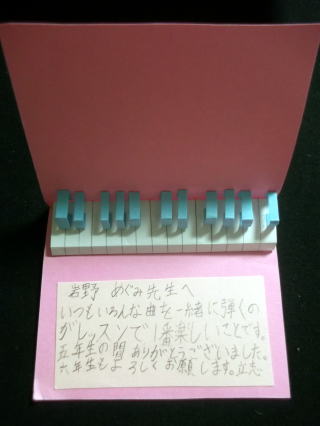 岩野 めぐみ先生へ
いつもいろんな曲を一緒に弾くの
がレッスンで1番楽しいことです。
五年生の間ありがとうございました。
六年生もよろしくお願いします。立志